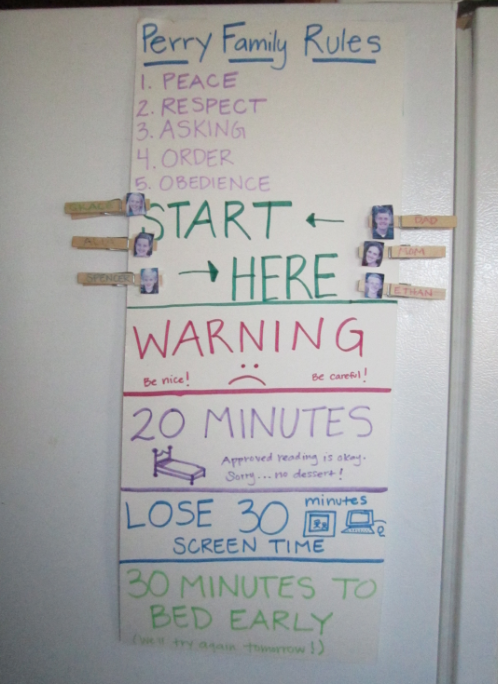 Perry Family Rules
1. PEACE
2. RESPECT
3. ASKING
4. ORDER
5. OBEDIENCE
GRACE
START ←
DAD
ALI
MOM
SPENCER
→ HERE
ETHAN
WARNING
Be nice!
Be careful!
20 MINUTES
Approved reading is okay.
Sorry...no dessert!
LOSE 30 minutes
SCREEN TIME
30 MINUTES TO
BED EARLY
(We'll try again tomorrow!)